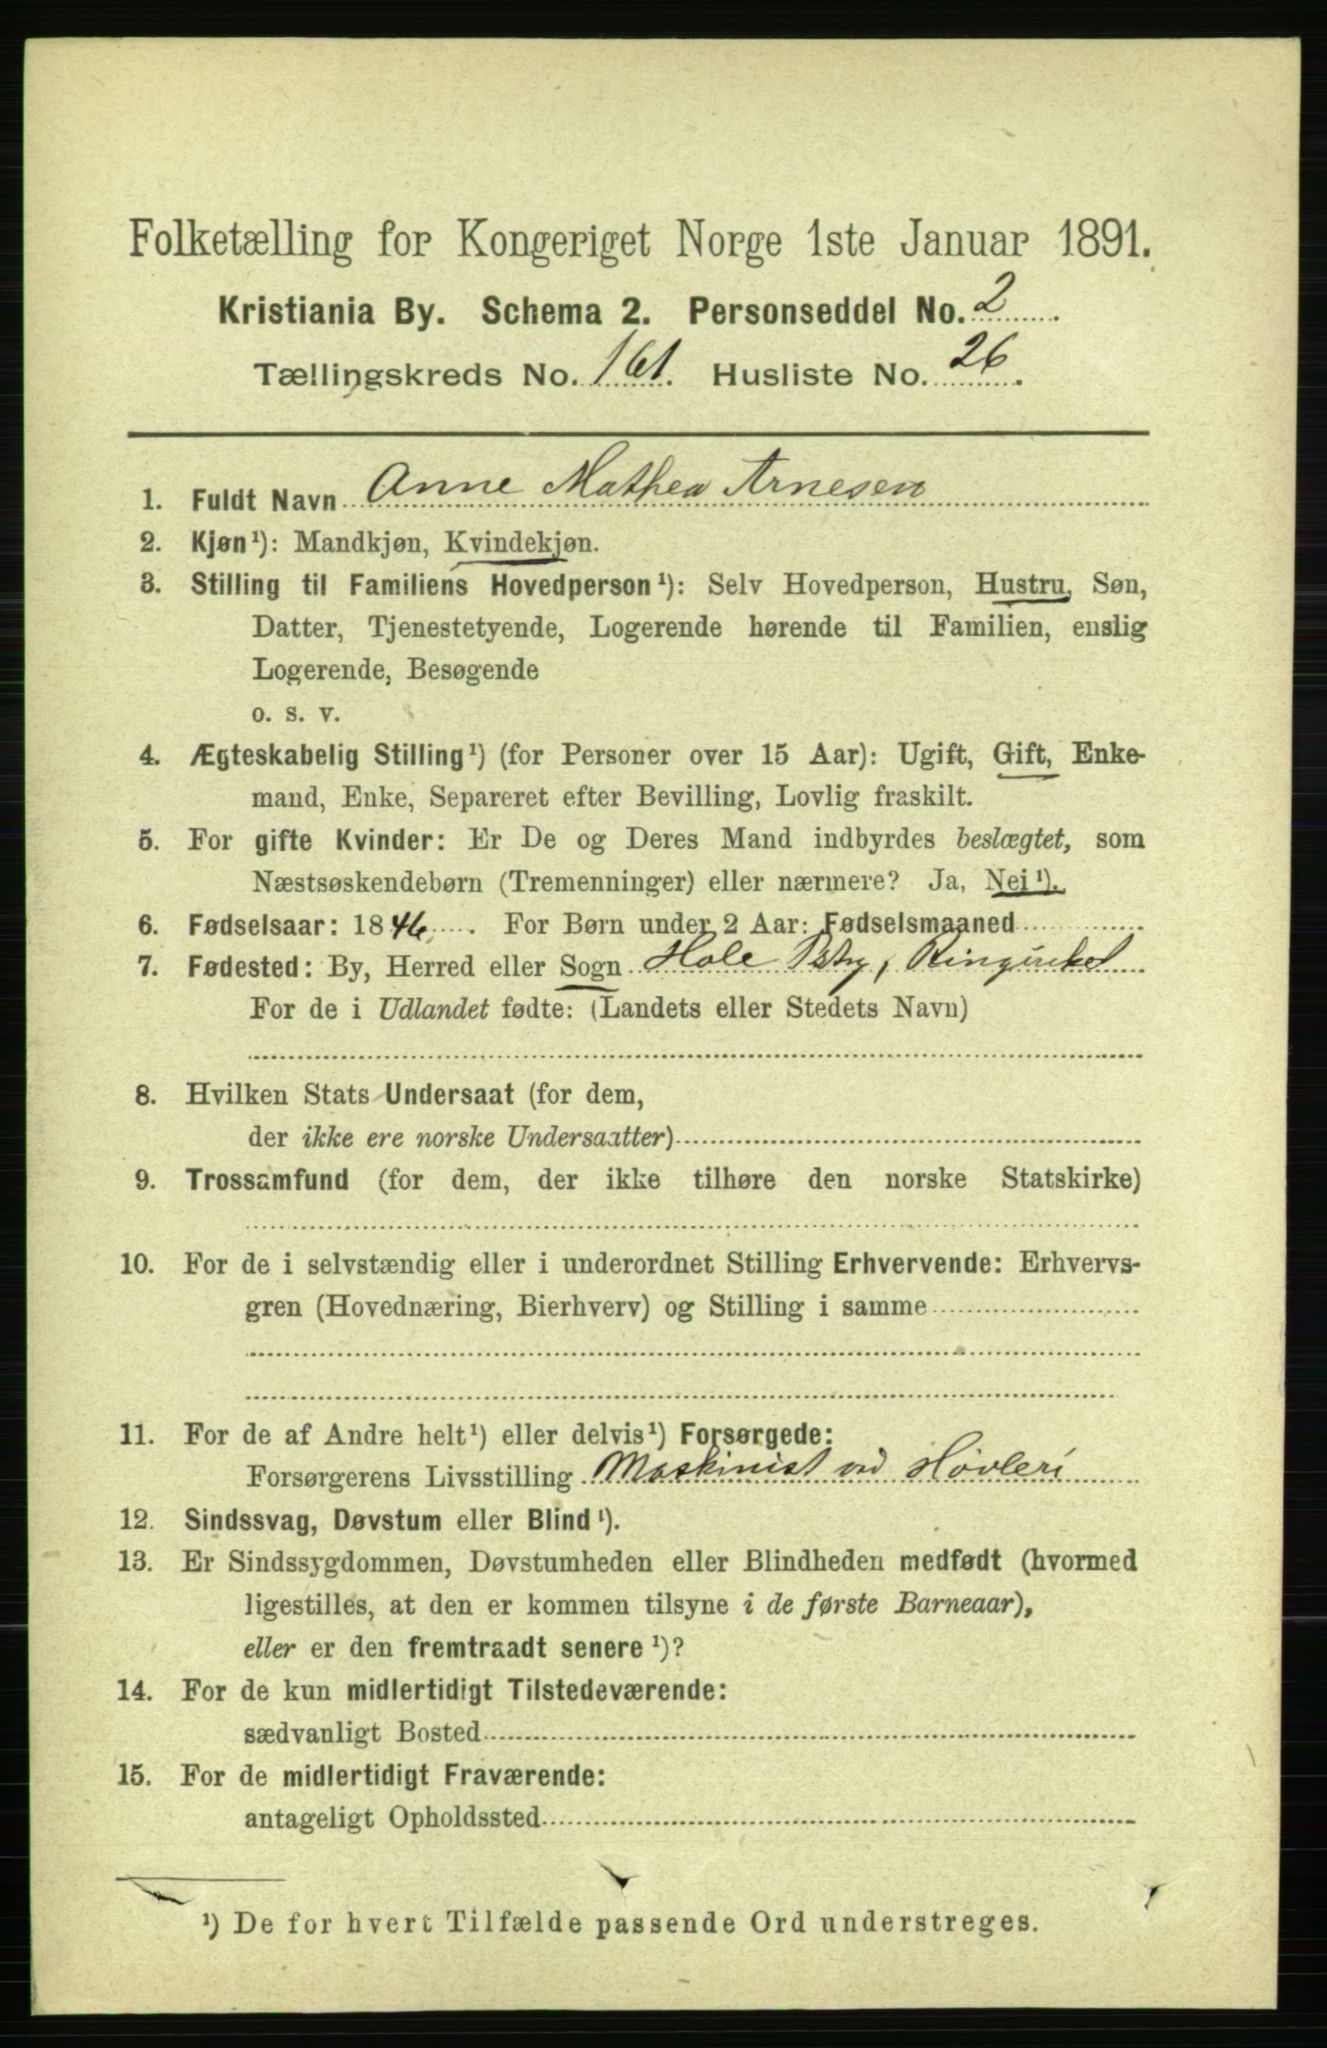 Folketælling for Kongeriget Norge 1ste Januar 1891.
Kristiania By. Schema 2. Personseddel No. 2.
Tællingskreds No. 161. Husliste No. 26.
1. Fuldt Navn Anne Mathea Arnesen
2. Kjøn¹): Mandkjøn, Kvindekjøn.
3. Stilling til Familiens Hovedperson¹): Selv Hovedperson, Hustru, Søn,
Datter, Tjenestetyende, Logerende hørende til Familien, enslig
Logerende, Besøgende
o. s. v.
4. Ægteskabelig Stilling¹) (for Personer over 15 Aar): Ugift, Gift, Enke-
mand, Enke, Separeret efter Bevilling, Lovlig fraskilt.
5. For gifte Kvinder: Er De og Deres Mand indbyrdes beslægtet, som
Næstsøskendebørn (Tremenninger) eller nærmere? Ja, Nei¹).
6. Fødselsaar: 1846. For Børn under 2 Aar: Fødselsmaaned
7. Fødested: By, Herred eller Sogn Hole
For de i Udlandet fødte: (Landets eller Stedets Navn)
8. Hvilken Stats Undersaat (for dem,
der ikke ere norske Undersaatter)
9. Trossamfund (for dem, der ikke tilhøre den norske Statskirke)
10. For de i selvstændig eller i underordnet Stilling Erhvervende: Erhvervs-
gren (Hovednæring, Bierhverv) og Stilling i samme
11. For de af Andre helt¹) eller delvis¹) Forsørgede:
Forsørgerens Livsstilling Maskinist ved Høvleri
12. Sindssvag, Døvstum eller Blind¹).
13. Er Sindssygdommen, Døvstumheden eller Blindheden medfødt (hvormed
ligestilles, at den er kommen tilsyne i de første Barneaar),
eller er den fremtraadt senere¹)?
14. For de kun midlertidigt Tilstedeværende:
sædvanligt Bosted
15. For de midlertidigt Fraværende:
antageligt Opholdssted
¹) De for hvert Tilfælde passende Ord understreges.